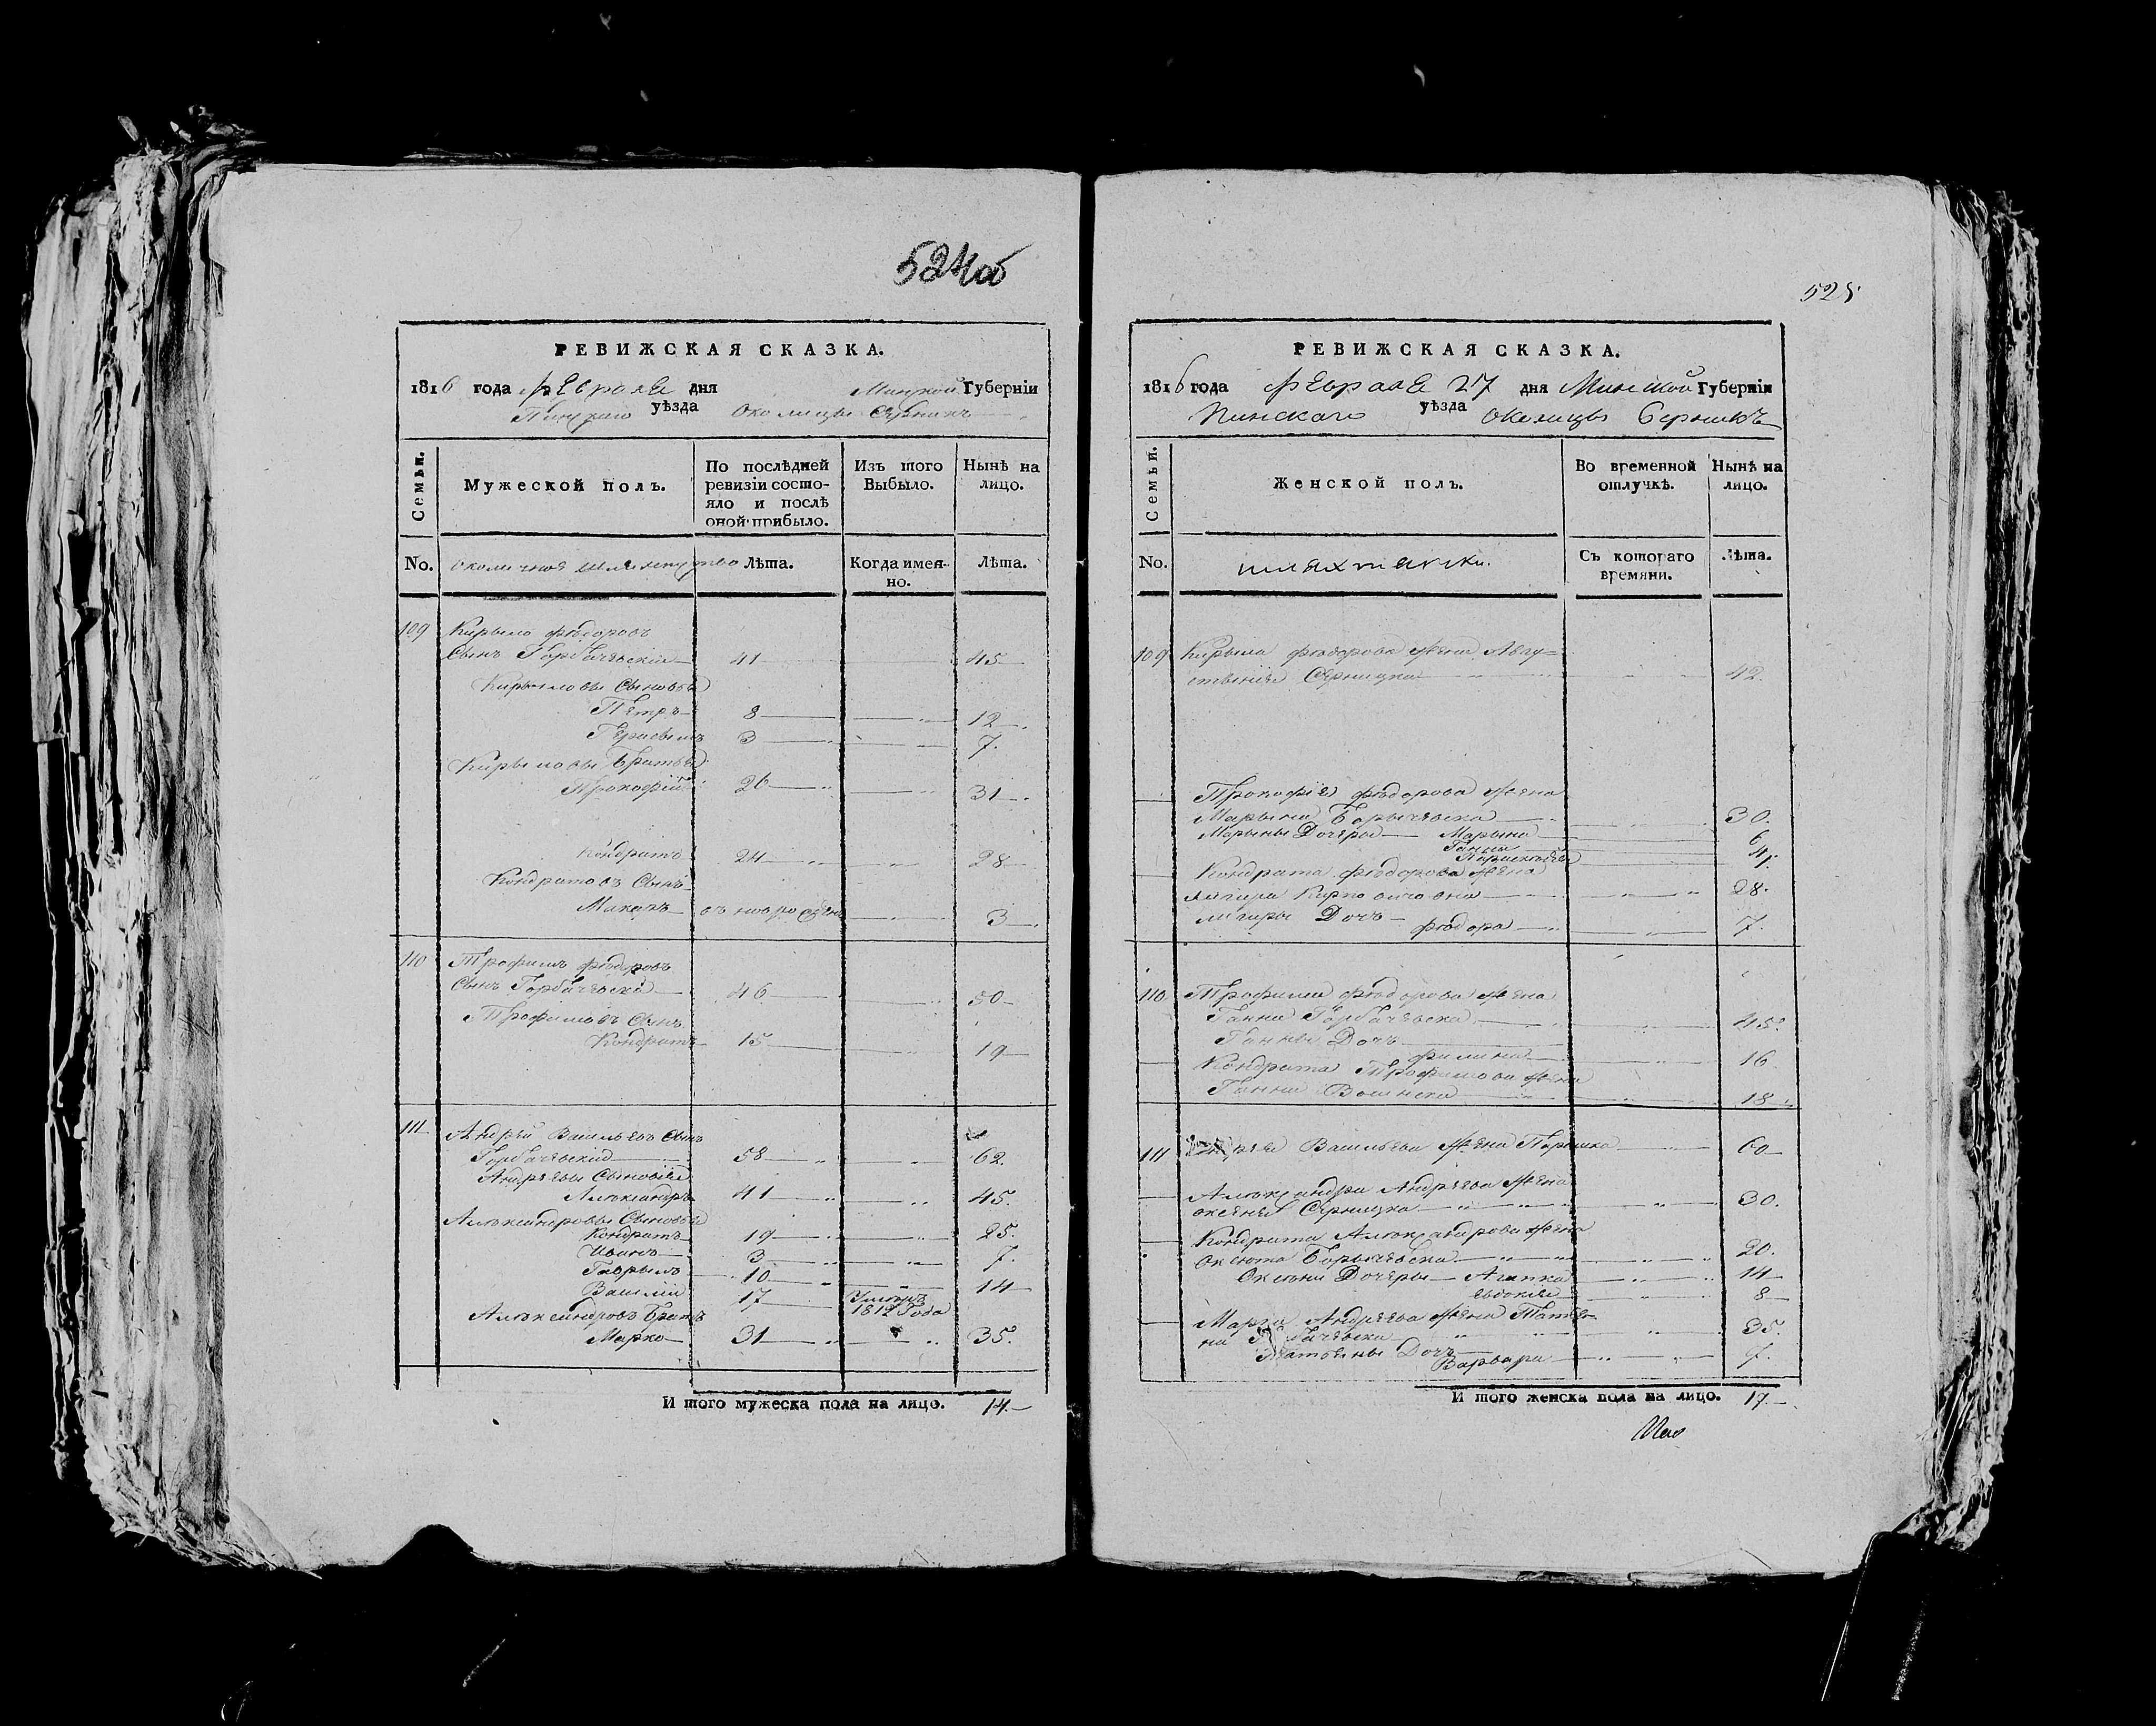 524об
РЕВИЖСКАЯ СКАЗКА.
1816 года февраля дня Минской Губерніи
Пинскаго уѣзда Околицы Серникъ
Семьи.
Мужеской полъ.
По послѣдней ревизіи состо-
яло и послѣ
оной прибыло.
Изъ того
Выбыло.
Нынѣ на
лицо.
No.
околичное шляхетство
Лѣта.
Когда имен-
но.
Лѣта.
109 Кирыло Фѣдоровъ
Сынъ Горбачевскій 41 45
Кирыловы Сыновья
Петръ 8 12
Герасымъ 3 7.
Кирыловы Братья
Прокофій 26 31
Кондратъ 24 28
Кондратовъ Сынъ
Макаръ 3
110 Трофимъ Фѣдоровъ
Сынъ Горбачевскій 46 50
Трофимовъ Сынъ
Кондратъ 15 19
111 Андрей Васильевъ Сынъ
Горбачевскій 58 62.
Андреевы Сыновья
Алѣксандръ 41 45.
Алѣксандровы Сыновья
Кондратъ 19 25.
Иванъ 3 7.
Гаврыло 10 14
Василій 17 Умеръ
1812 Года
Алѣксандровъ Братъ
Марко 31 35.
И того мужеска пола на лицо. 14.
525
РЕВИЖСКАЯ СКАЗКА.
1816 года февраля 27 дня Минской Губерніи
Пинскаго уѣзда Околицы Серникъ
Семьи.
Женской полъ.
Во временной
отлучкѣ.
Нынѣ на
лицо.
No.
шляхтянки.
Съ котораго
времяни.
Лѣта.
109 Кирыла Фѣдорова жена Авгу=
стынія Серницка 42.
Прокофія Фѣдорова жена
Марына Борычевска 30.
Марыны Дочеры Марына 6
Ганна
4.
Кондрата Фѣдорова жена
28.
Дочъ Фѣдора 7.
110 Трофима Фѣдорова жена
Ганна Горбачевска 45.
Ганны Дочъ
16
Кондрата Трофимова жена
Ганна 18
111 Васильева жена Парашка 60
Алѣксандра Андреева жена
Серницка 30.
Кондрата Алѣксандрова жена
Оксюта Борычевска 20.
Дочеры Агапка 14
Евдокія 8
Марка Андреева жена Татья-
на 35.
Татьяны Дочъ
Варвара 7.
И того женска пола на лицо. 17.